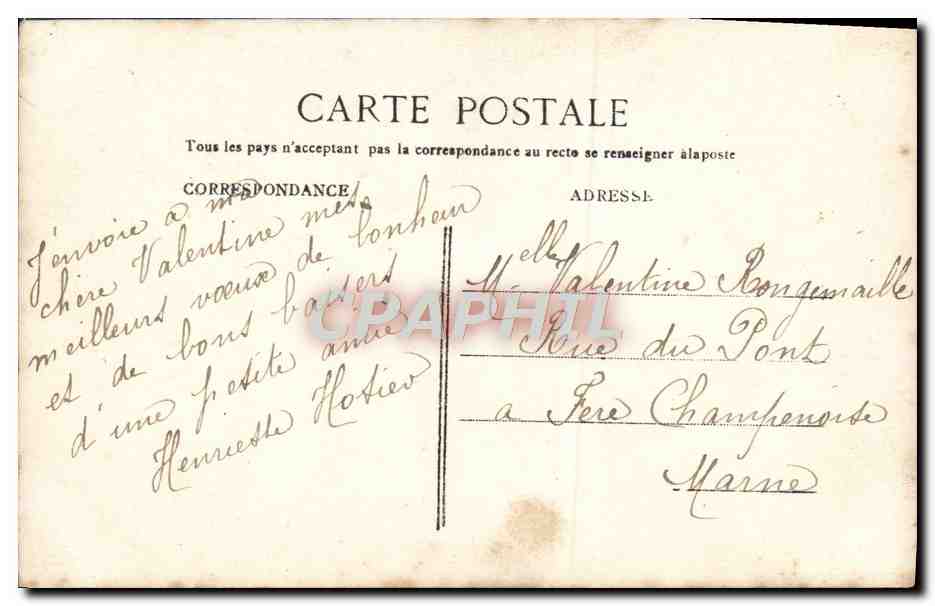 CARTE POSTALE
Tous les pays n'acceptent pas la correspondance au recto se renseigner à la poste
CORRESPONDANCE
J'envoie a ma
chère Valentine mes
meilleurs vœux de bonheur
et de bons baisers
d'une petite amie
Henriette
ADRESSE
Melle Valentine Rougemaille
Rue du Pont
a Fere Champenoise
Marne
CPAPHIL